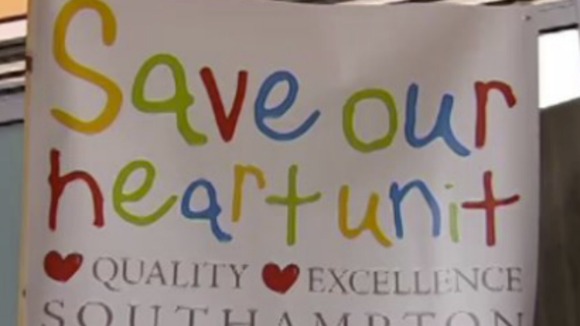 Save our
heart unit
QUALITY EXCELLENCE
SOUTHAMPTON